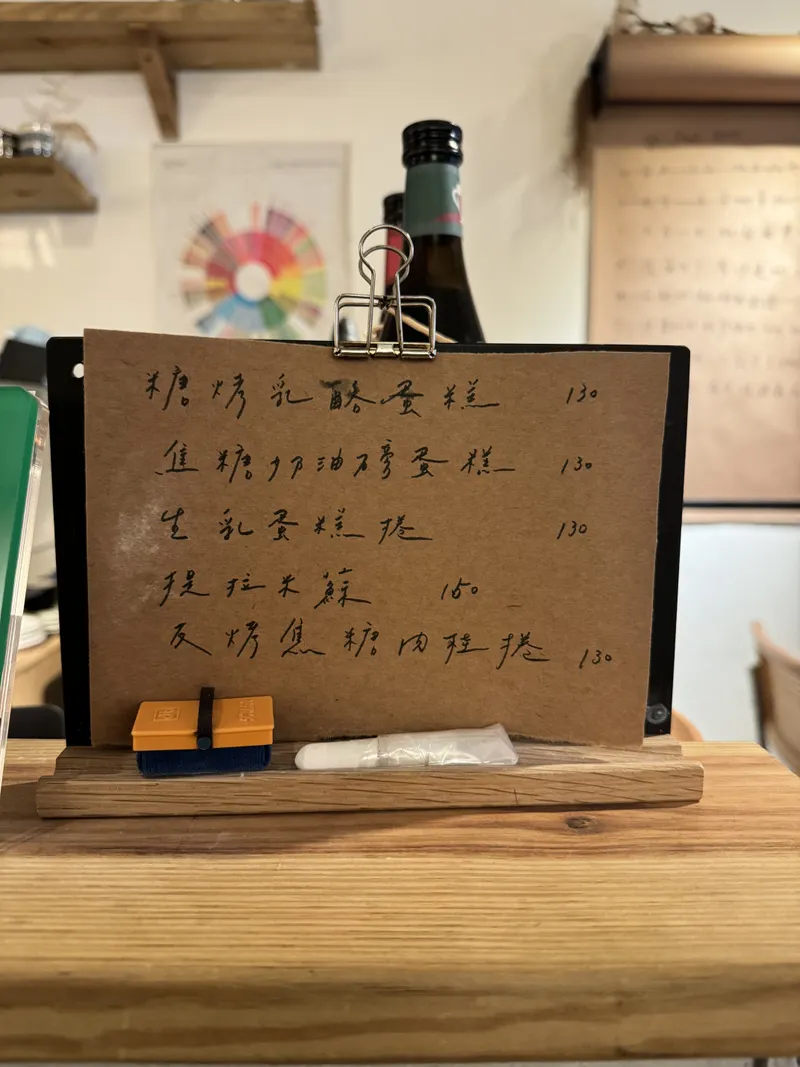 糖烤乳酪蛋糕 130
焦糖奶油磅蛋糕 130
生乳蛋糕捲 130
提拉米蘇 150
反烤焦糖肉桂捲 130